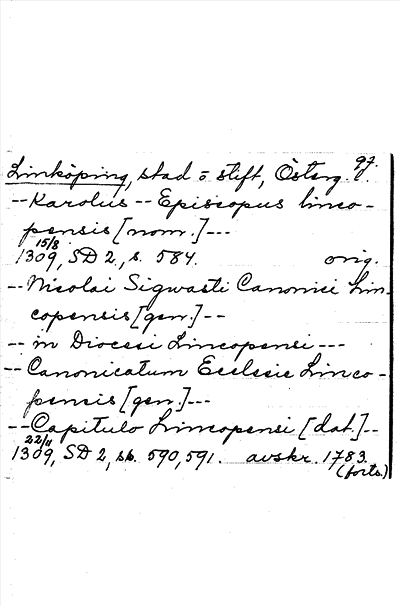 97.
Linköping, stad o stift, Österg.
-- Karolus -- Episcopus linco-
pensis [nom.] ---
15/8
1309, SD 2, s. 584. orig.
-- Nicolai Sigwasti Canonici Lin-
copensis [gen.] --
-- in Diocesi Lincopensi ---
-- Canonicatum Ecclesie Linco-
pensis [gen.] ---
-- Capitulo Lincopensi [dat.] --
22/11
1309, SD 2, ss. 590, 591. avskr. 1783.
(forts.)